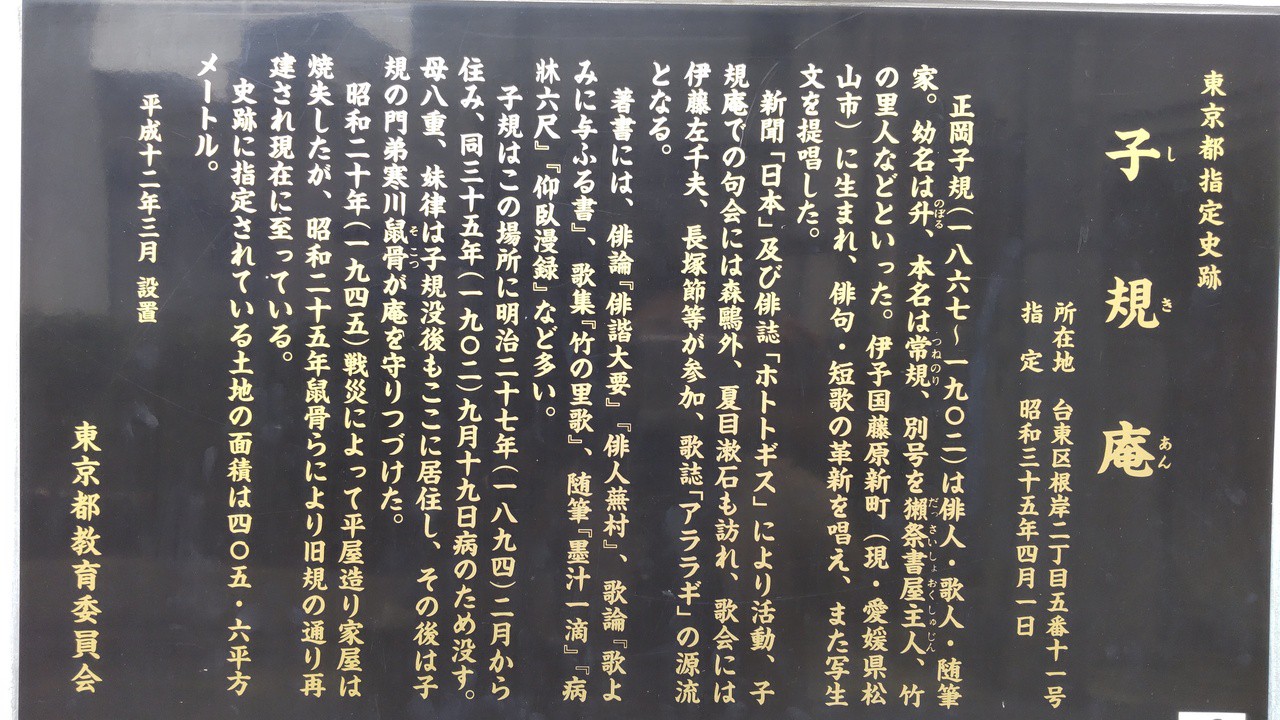 東京都指定史跡
子規庵
し き あん
所在地 台東区根岸二丁目五番十一号
指 定 昭和三十五年四月一日
正岡子規(一八六七〜一九〇二)は俳人・歌人・随筆
家。幼名は升、本名は常規、別号を獺祭書屋主人、竹
のぼる つねのり だっさいしょおくしゅじん
の里人などといった。伊予国藤原新町(現・愛媛県松
山市)に生まれ、俳句・短歌の革新を唱え、また写生
文を提唱した。
新聞「日本」及び俳誌「ホトトギス」により活動、子
規庵での句会には森鷗外、夏目漱石も訪れ、歌会には
伊藤左千夫、長塚節等が参加、歌誌「アララギ」の源流
となる。
著書には、俳論『俳諧大要』『俳人蕪村』、歌論『歌よ
みに与ふる書』、歌集『竹の里歌』、随筆『墨汁一滴』『病
牀六尺』『仰臥漫録』など多い。
子規はこの場所に明治二十七年(一八九四)二月から
住み、同三十五年(一九〇二)九月十九日病のため没す。
母八重、妹律は子規没後もここに居住し、その後は子
規の門弟寒川鼠骨が庵を守りつづけた。
そこつ
昭和二十年(一九四五)戦災によって平屋造り家屋は
焼失したが、昭和二十五年鼠骨らにより旧規の通り再
建され現在に至っている。
史跡に指定されている土地の面積は四〇五・六平方
メートル。
平成十二年三月 設置
東京都教育委員会